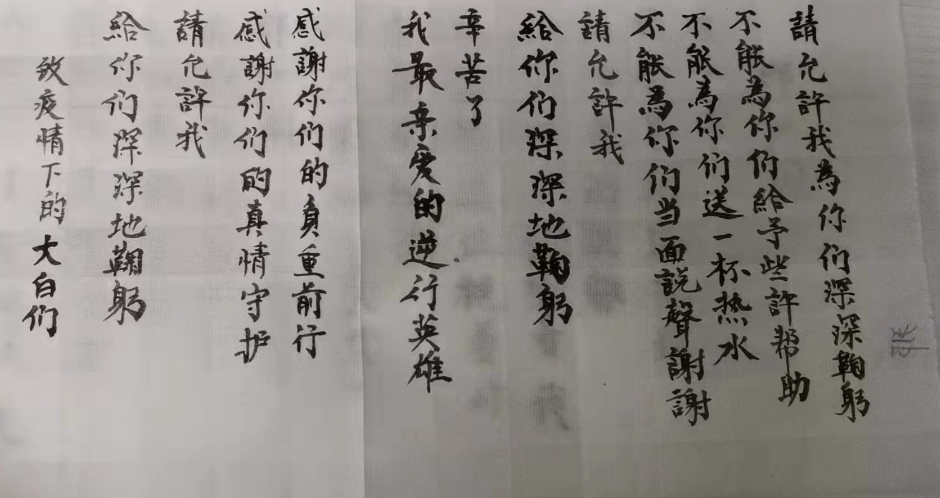 請允許我為你们深深鞠躬
不能為你们給予些許帮助
不能為你们送一杯热水
不能為你们当面説聲謝謝
請允許我
給你们深深地鞠躬
辛苦了
我最亲爱的逆行英雄
感謝你们的負重前行
感謝你们的真情守护
請允許我
給你们深深地鞠躬
致疫情下的大白们